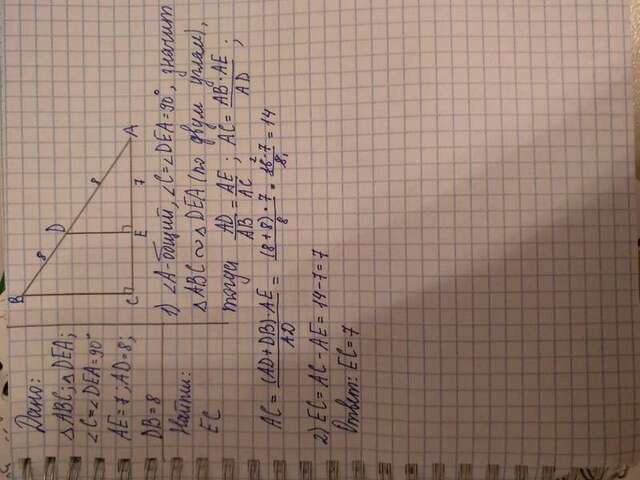 Дано:
△ABC; △DEA;
∠C=∠DEA=90°
AE=7; AD=8;
DB=8
Найти:
EC
B
D
A
C
E
8
8
7
1) ∠A-общий, ∠C=∠DEA=90°, значит
△ABC ∾ △DEA (по двум углам),
тогда AD/AB = AE/AC; AC = AB·AE/AD;
AC = (AD+DB)·AE/AD = (8+8)·7/8 = 16·7/8 = 14
2
1
2) EC = AC - AE = 14-7=7
Ответ: EC=7